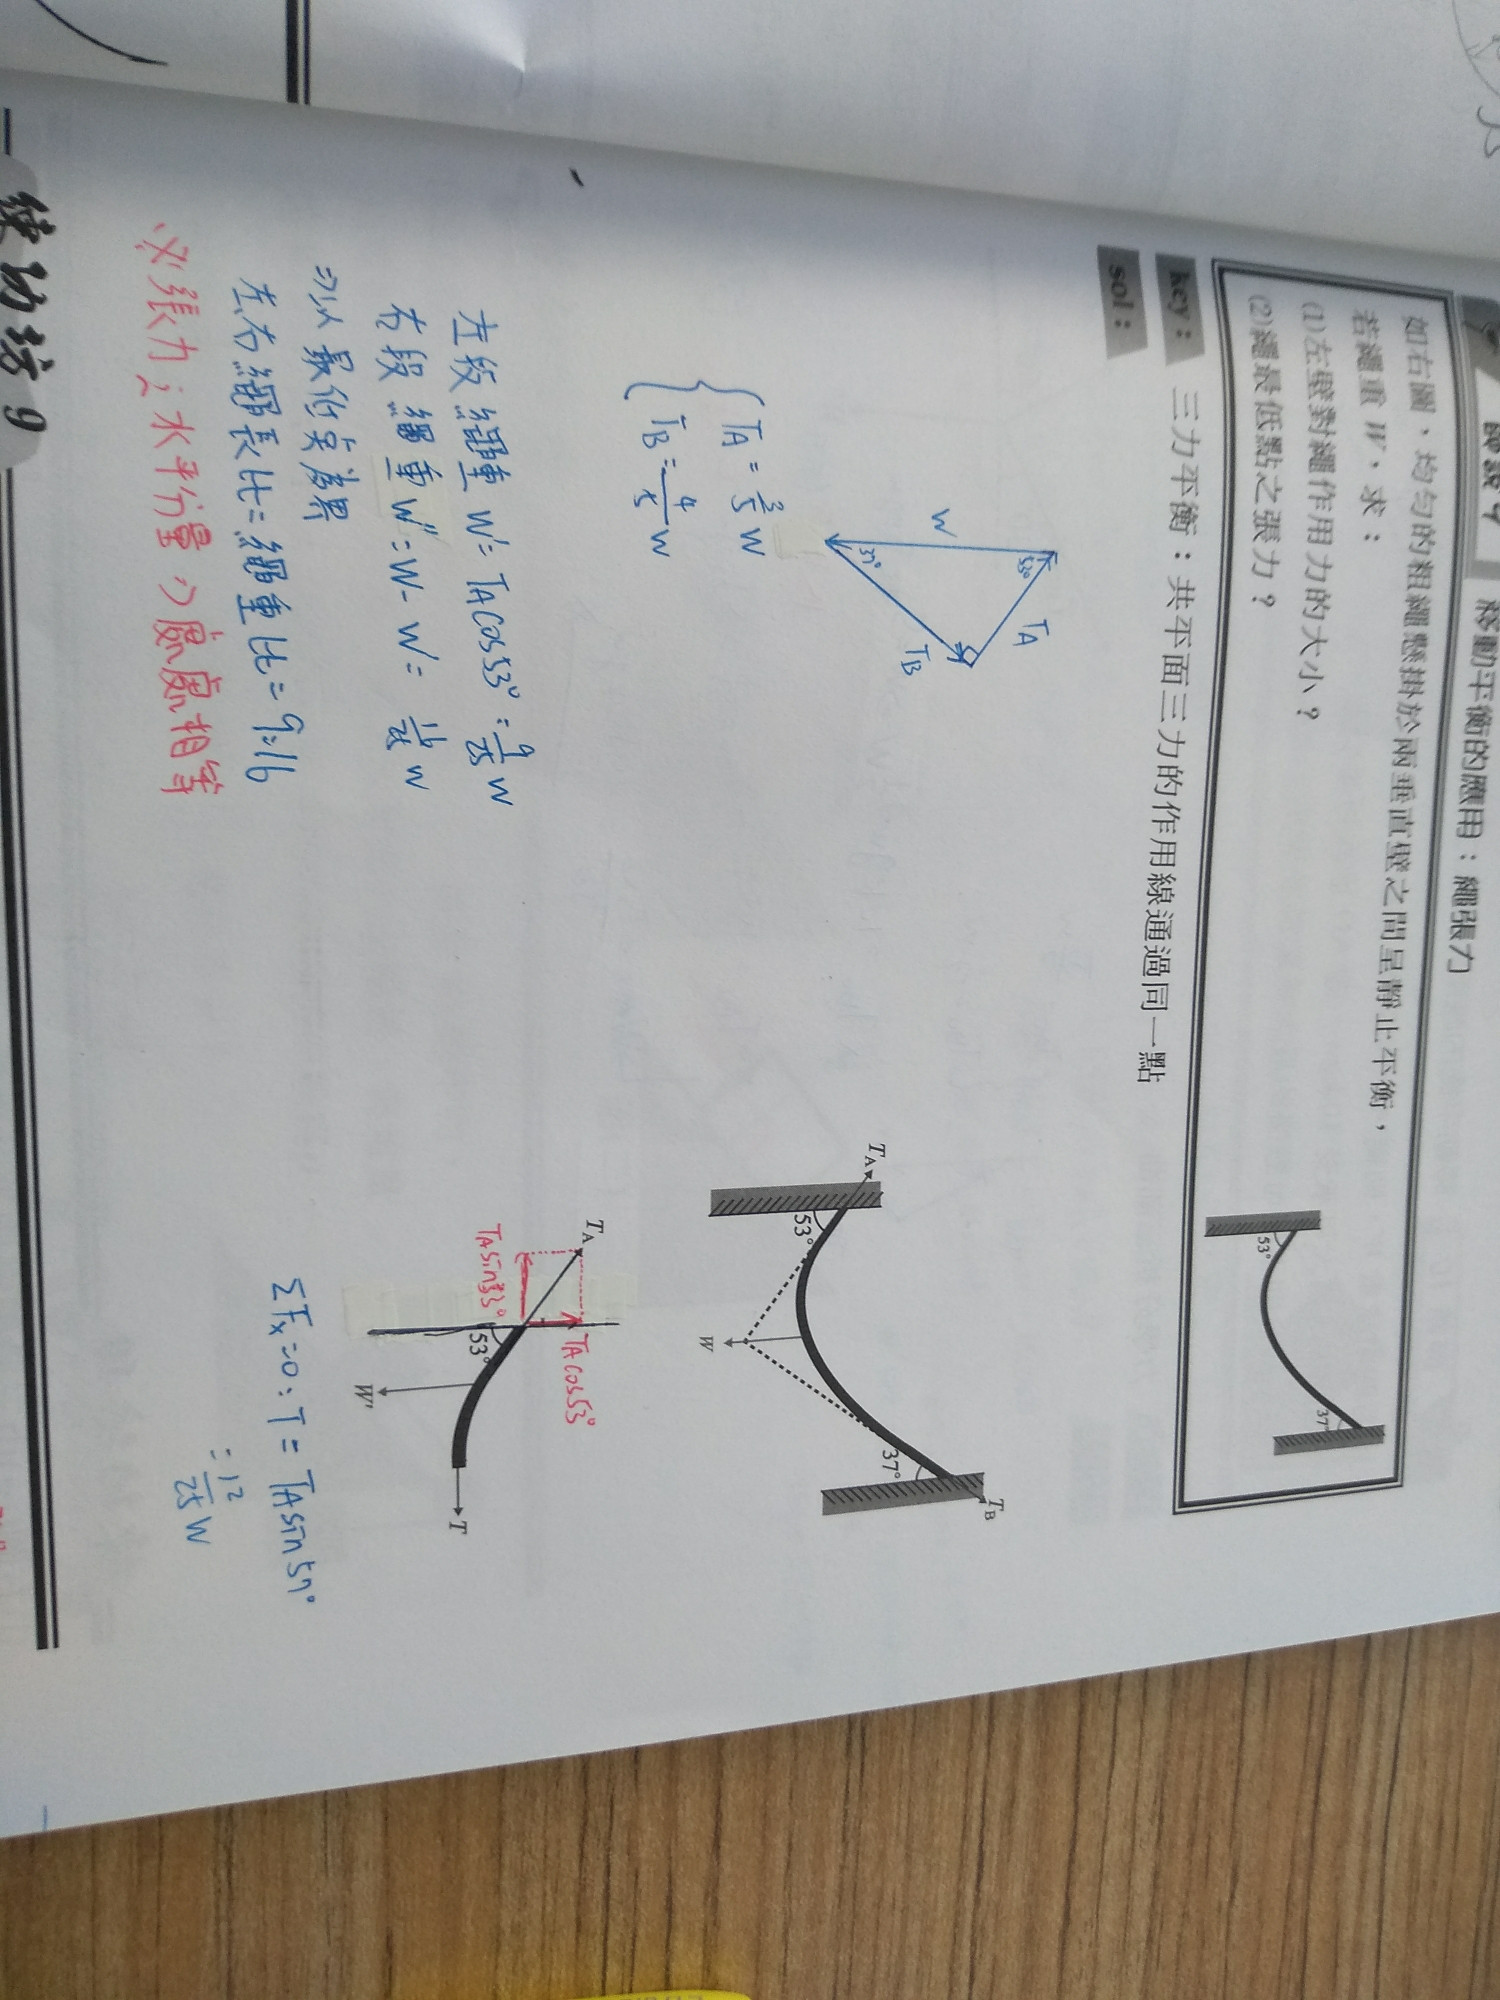 移動平衡的應用：繩張力
如右圖，均勻的粗繩懸掛於兩垂直壁之間呈靜止平衡，
若繩重 W，求：
(1)左壁對繩作用力的大小？
(2)繩最低點之張力？
53°
37°
key：
三力平衡：共平面三力的作用線通過同一點
sol：
53°
TA
W
37°
TB
TA = 3/5 W
TB = 4/5 W
TA
53°
W
37°
TB
左段繩重 W' = TA cos53° = 9/25 W
右段繩重 W'' = W - W' = 16/25 W
⇒以最低點為界
左右繩長比 = 繩重比 = 9:16
※張力之水平分量 處處相等
TA
TA cos53°
TA sin53°
53°
W'
T
ΣFx = 0 : T = TA sin57°
= 12/25 W
練功坊 9